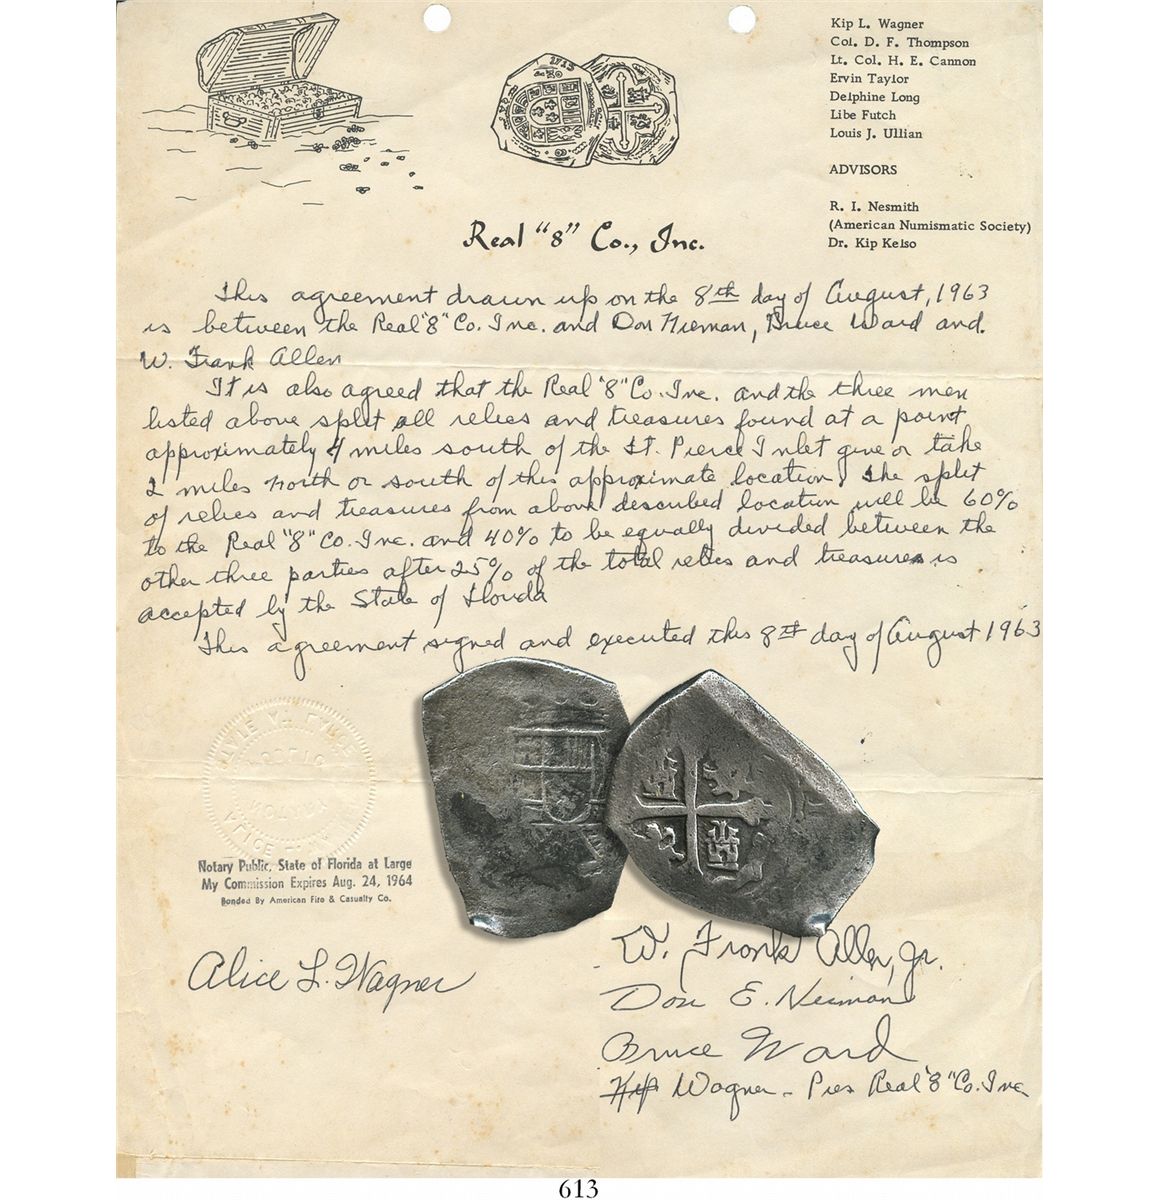 Kip L. Wagner
Col. D. F. Thompson
Lt. Col. H. E. Cannon
Ervin Taylor
Delphine Long
Libe Futch
Louis J. Ullian
ADVISORS
R. I. Nesmith
(American Numismatic Society)
Dr. Kip Kelso
1715
Real "8" Co., Inc.
This agreement drawn up on the 8th day of August, 1963
is between the Real "8" Co. Inc. and Don Nieman, Bruce Ward and
W. Frank Allen
It is also agreed that the Real "8" Co. Inc. and the three men
listed above split all relics and treasures found at a point
approximately 4 miles south of the Ft. Pierce Inlet give or take
2 miles north or south of this approximate location. The split
of relics and treasures from above described location will be 60%
to the Real "8" Co. Inc. and 40% to be equally divided between the
other three parties after 25% of the total relics and treasures is
accepted by the State of Florida
This agreement signed and executed this 8th day of August 1963
Notary Public, State of Florida at Large
My Commission Expires Aug. 24, 1964
Bonded By American Fire & Casualty Co.
Alice L. Wagner
W. Frank Allen, Jr.
Don E. Neiman
Bruce Ward
Kip Wagner - Pres Real "8" Co. Inc
613